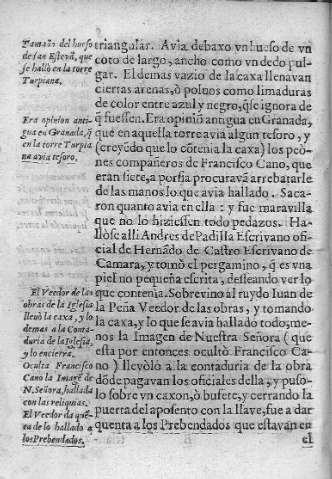 Tamaño del hueso
de san Esteuã, que
se halló en la torre
Turpiana.
Era opinion anti-
gua en Granada, q̃
en la torre Turpia
na auia tesoro.
El Veedor de las
obras de la Iglesia
lleuò la caxa, y lo
demas a la Conta-
duria de la Iglesia,
y lo encierra.
Oculta Francisco
Cano la Imagẽ de
N. Señora, hallada
con las reliquias.
El Veedor da quẽ-
ta de lo hallado a
los Prebendados.
triangular. Avia debaxo vn hueso de vn
coto de largo, ancho como vn dedo pul-
gar. El demas vazio de la caxa llenavan
ciertas arenas, ò polvos como limaduras
de color entre azul y negro, q̃ se ignora de
q̃ fuessen. Era opiniõ antigua en Granada,
que en aquella torre avia algun tesoro, y
(creyẽdo que lo cõtenia la caxa) los peo-
nes compañeros de Francisco Cano, que
eran siete, a porfia procuravã arrebatarle
de las manos lo que avia hallado. Saca-
ron quanto avia en ella: y fue maravilla
que no lo hiziessen todo pedazos. Ha-
llòse alli Andres de Padilla Escrivano ofi-
cial de Hernãdo de Castro Escrivano de
Camara, y tomò el pergamino, q̃ es vna
piel no pequeña escrita, desseando ver lo
que contenia. Sobrevino al ruydo Iuan de
la Peña Veedor de las obras, y tomando
la caxa, y lo que se avia hallado todo, me-
nos la Imagen de Nuestra Señora (que
esta por entonces ocultò Francisco Ca-
no) llevòlo a la contaduria de la obra
dõde pagavan los oficiales della, y puso-
lo sobre vn caxon, ò bufete, y cerrando la
puerta del aposento con la llave, fue a dar
quenta a los Prebendados que estavan en
el